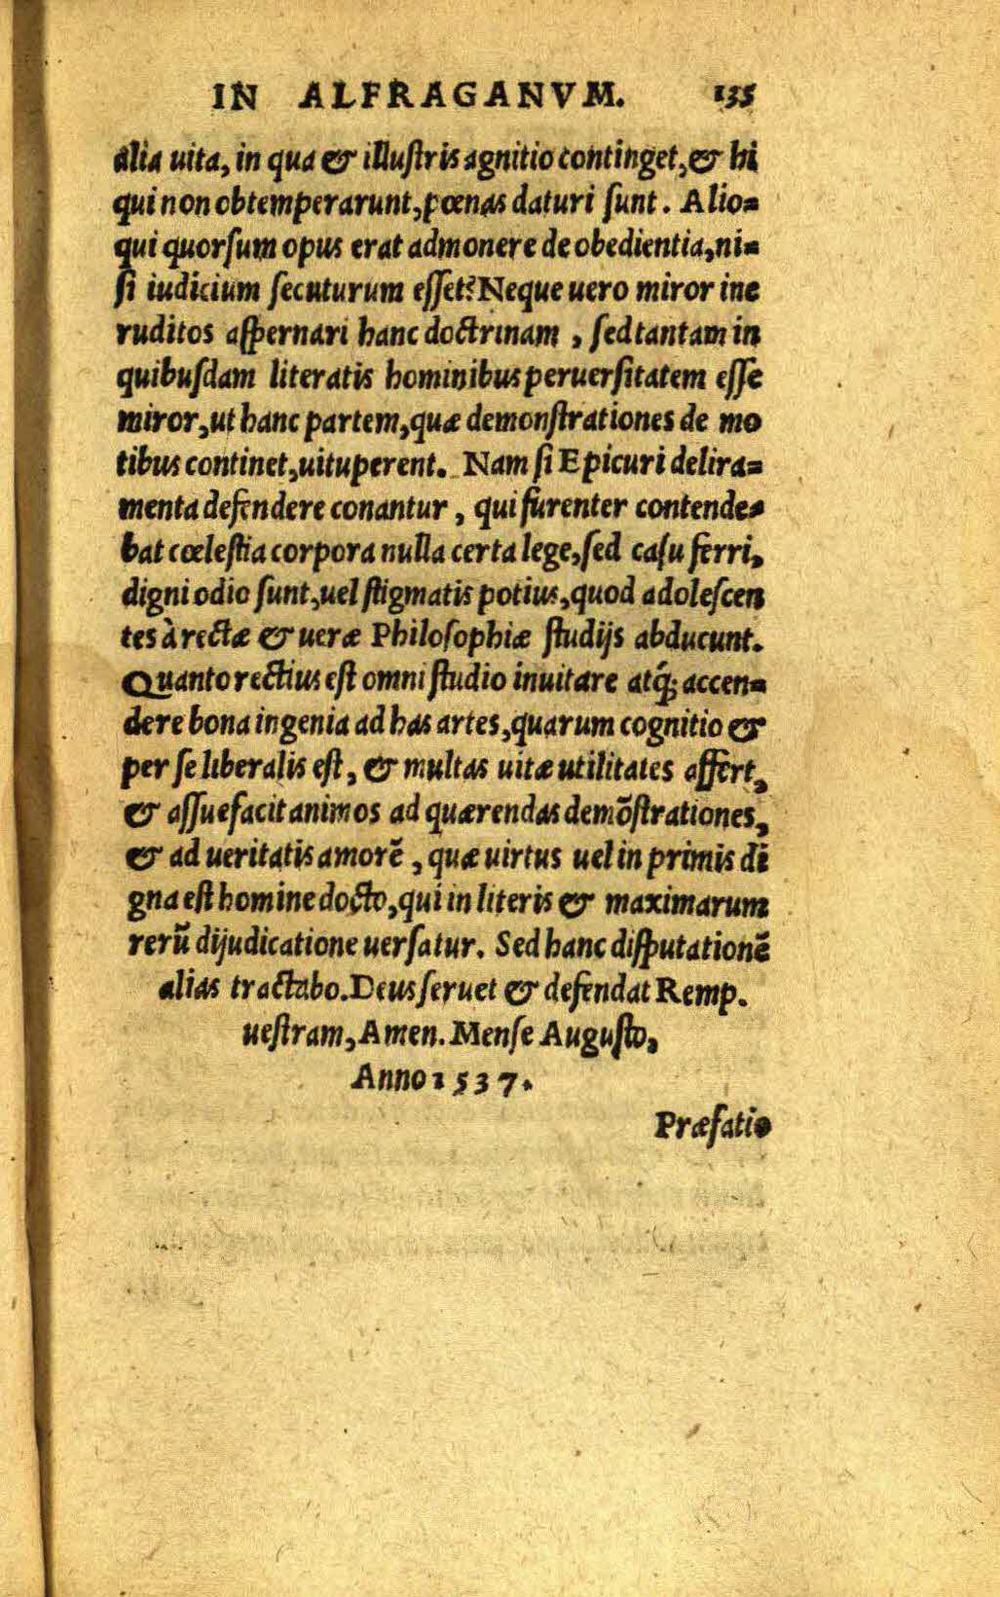 IN ALFRAGANVM. 135
alia uita, in qua & illustris agnitio continget, & hi
qui non obtemperarunt, pœnas daturi sunt. Alio=
qui quorsum opus erat admonere de obedientia, ni=
si iudicium secuturum esset? Neque uero miror ine
ruditos aspernari hanc doctrinam, sed tantam in
quibusdam literatis hominibus peruersitatem esse
miror, ut hanc partem, quæ demonstrationes de mo
tibus continet, uituperent. Nam si Epicuri delira=
menta defendere conantur, qui furenter contende=
bat cœlestia corpora nulla certa lege, sed casu ferri,
digni odio sunt, uel stigmatis potius, quod adolescen
tes à rectæ & ueræ Philosophiæ studijs abducunt.
Quanto rectius est omni studio inuitare atq; accen=
dere bona ingenia ad has artes, quarum cognitio &
per se liberalis est, & multas uitæ utilitates affert,
& assuefacit animos ad quærendas demõstrationes,
& ad ueritatis amorẽ, quæ uirtus uel in primis di
gna est homine docto, qui in literis & maximarum
rerũ dijudicatione uersatur. Sed hanc disputationẽ
alias tractabo. Deus seruet & defendat Remp.
uestram, Amen. Mense Augusto,
Anno 1537.
Præfatio